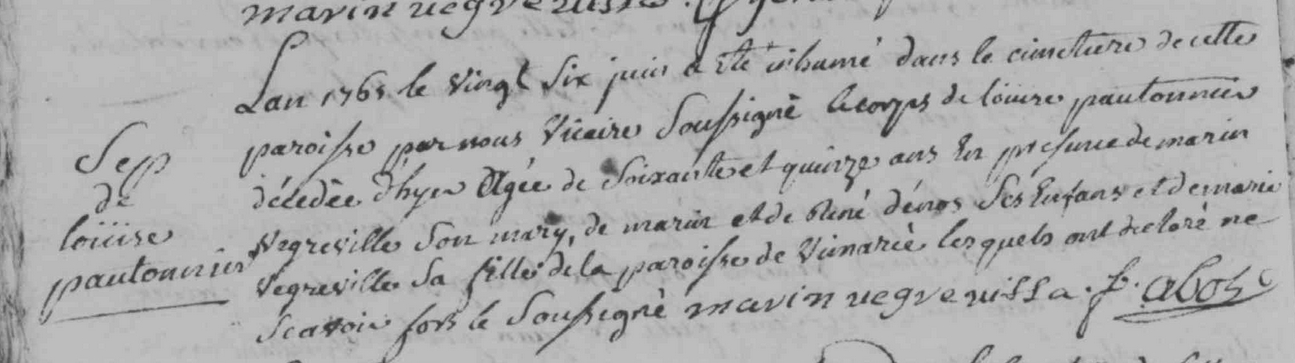 Lan 1765 le vingt Six juin a été inhumé dans le cimetiere de cette
paroisse par nous Vicaire Soussigné le corps de loüise pautonnier
décédée d'hyer Agée de Soixante et quinze ans En presence de marin
Vegreville Son mary, de marin et de René dénos Ses Enfans et de marie
Vegreville Sa fille de la paroisse de Vimarcé lesquels ont declaré ne
Scavoir fors le Soussigné marin vegrevilla. f. abot
Sep
de
loüise
pautonnier